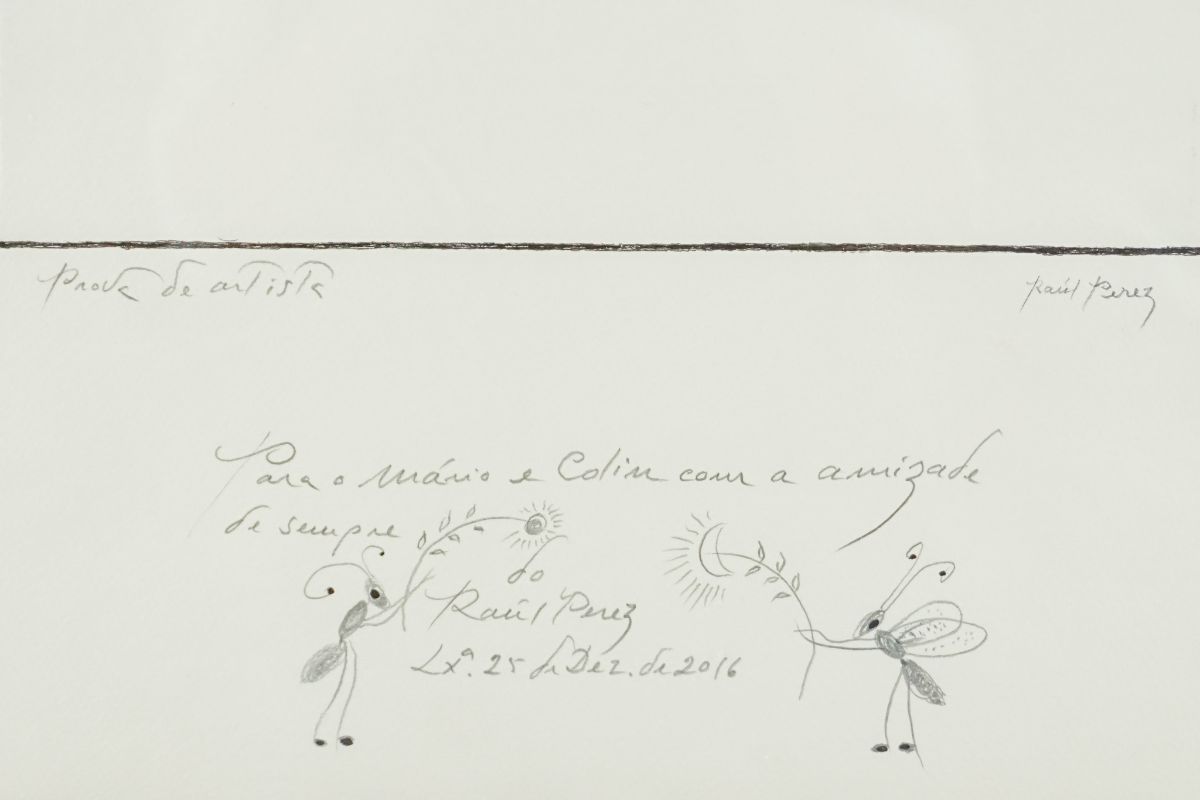 Prova de artista
Raúl Perez
Para o Mário e Colin com a amizade
de sempre
do
Raúl Perez
Lxª. 25 de Dez. de 2016